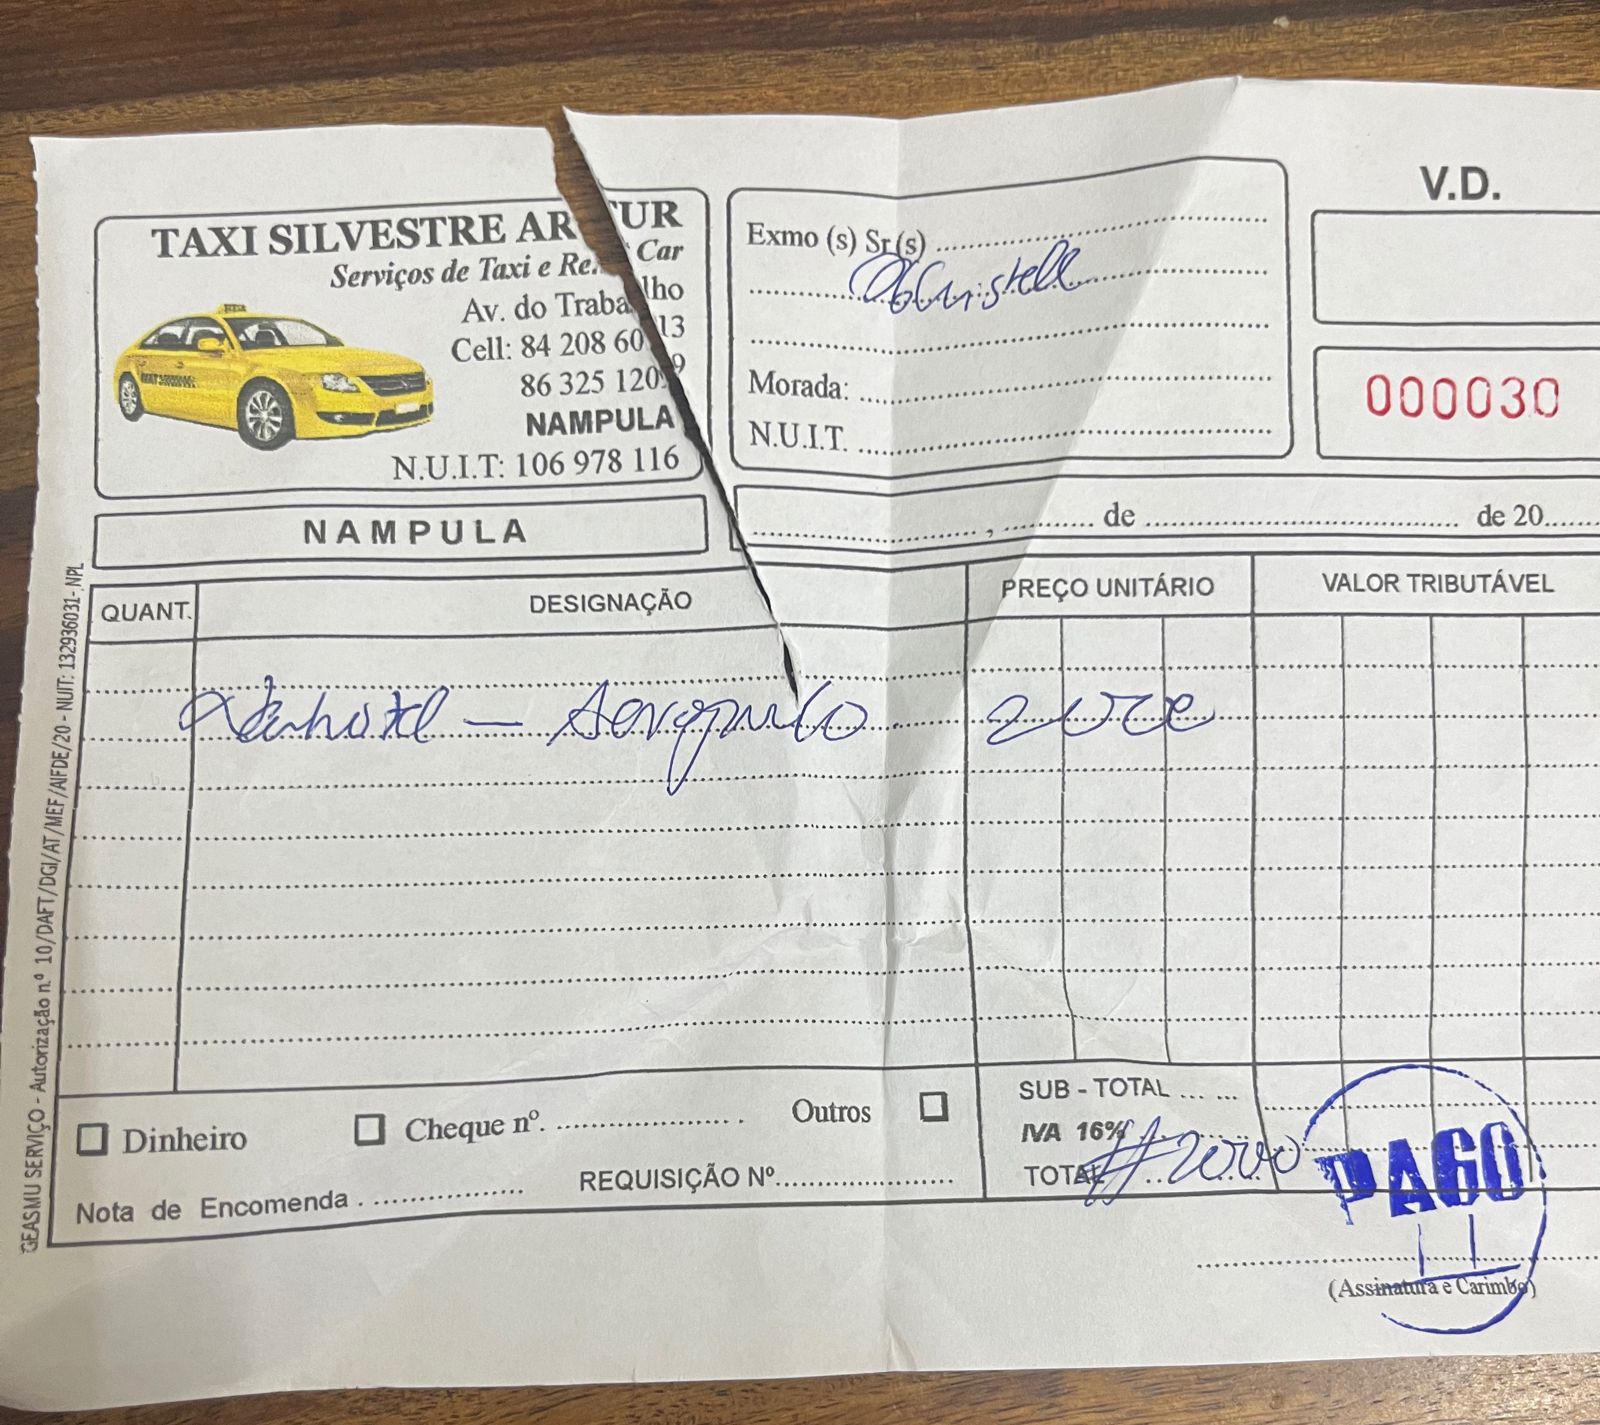 TAXI SILVESTRE ARTUR
Serviços de Taxi e Rent Car
Av. do Trabalho
Cell: 84 208 60 13
86 325 120 9
NAMPULA
N.U.I.T: 106 978 116
NAMPULA
Exmo (s) Sr.(s)
Morada:
N.U.I.T.
V.D.
000030
, de de 20
QUANT. DESIGNAÇÃO PREÇO UNITÁRIO VALOR TRIBUTÁVEL
- Aeroporto
Dinheiro Cheque nº. Outros
Nota de Encomenda REQUISIÇÃO Nº
SUB - TOTAL
IVA 16%
TOTAL
PAGO
(Assinatura e Carimbo)
GEASMU SERVIÇO - Autorização n.º 10/DAFT/DGI/AT/MEF/AIFDE/20 - NUIT: 132936031- NPL